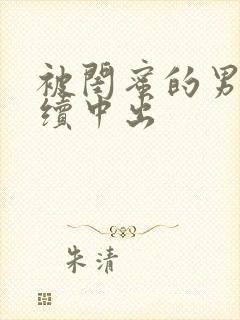 被閨蜜的男
續中出
朱清